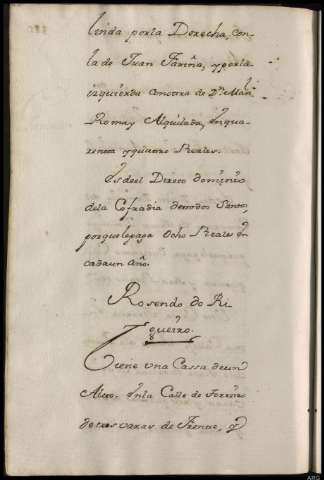 linda por la Derecha, con
la de Juan Fariña, y por la
izquierda con otra de Dn. Man.
Romay Alquilada, en qua-
renta y quatro Reales.
Es de el Directo dominio
de la Cofradia de todos Santos,
por que le paga Ocho Reales en
cada un Año.
Rosendo do Ri-
gueiro.
Tiene una Cassa de un
Alto, en la Calle de
de tres varas de Frente, y
ARG